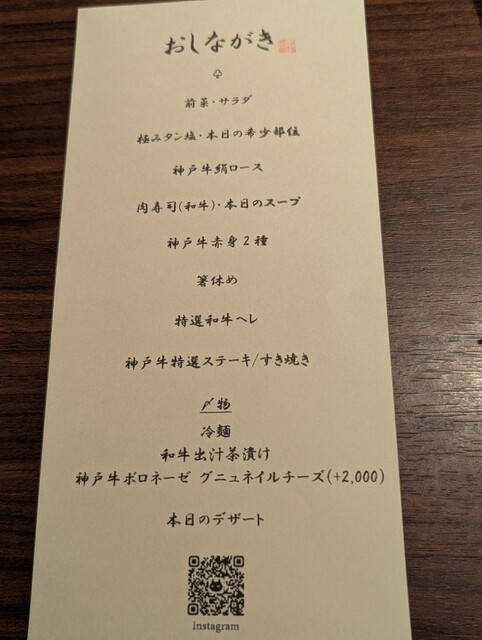 おしながき
前菜・サラダ
極みタン塩・本日の希少部位
神戸牛絹ロース
肉寿司(和牛)・本日のスープ
神戸牛赤身2種
箸休め
特選和牛ヘレ
神戸牛特選ステーキ/すき焼き
〆物
冷麺
和牛出汁茶漬け
神戸牛ボロネーゼ グニュネイルチーズ(+2,000)
本日のデザート
Instagram